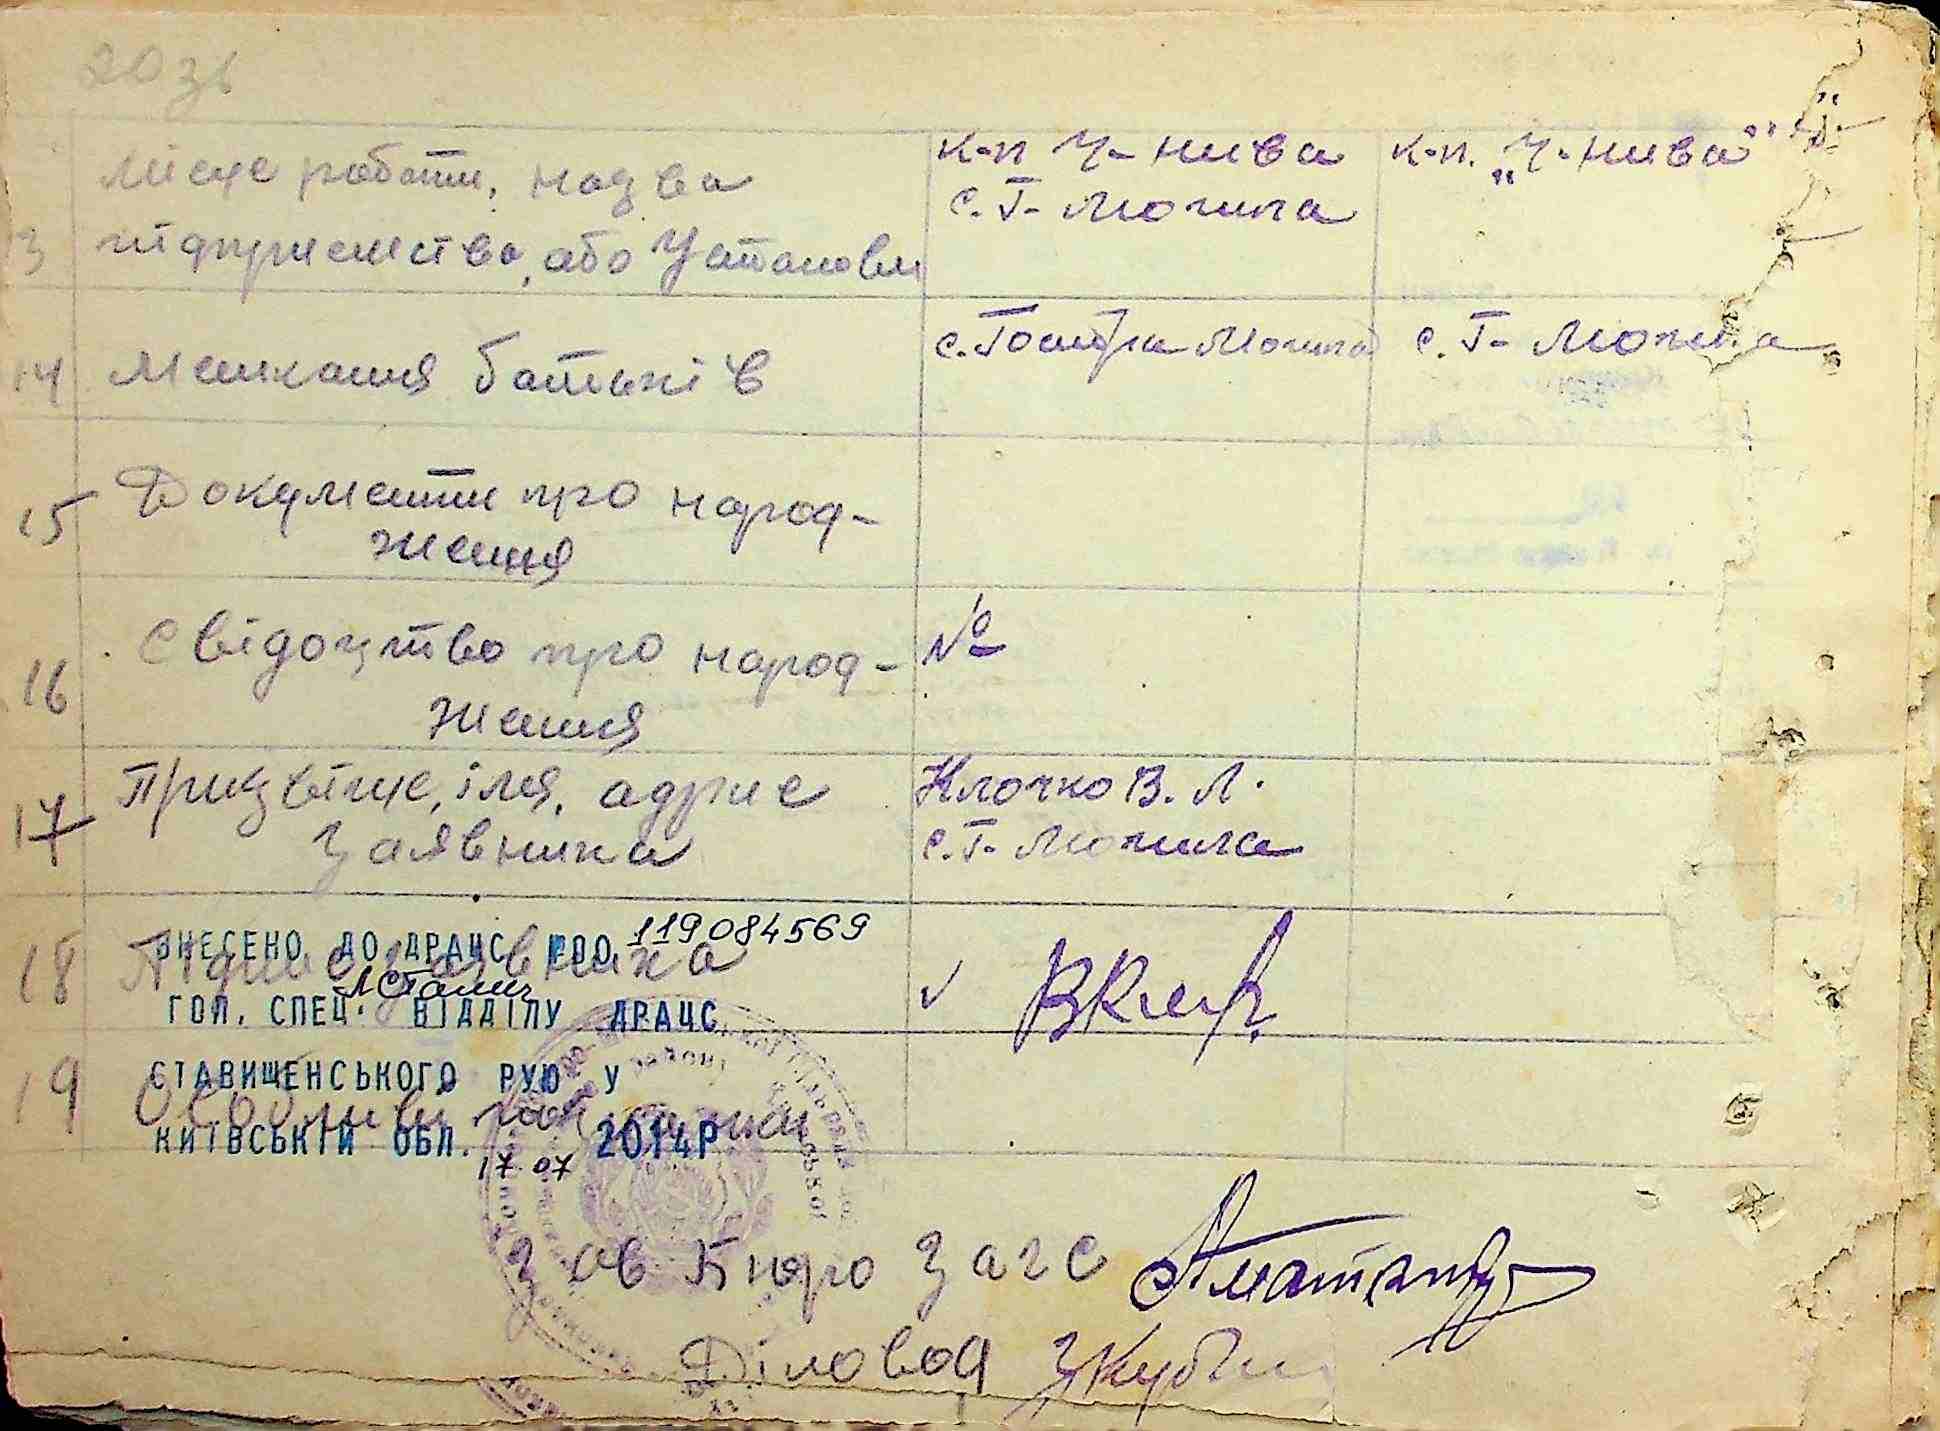 20 зв
13 Місце роботи, назва
підприємства, або Установи
к-п Ч-нива
с. Г-Могила
к-п. „Ч-нива"
14 Мешкання батьків
с. Гостра Могила
с. Г-Могила
15 Документи про народ-
ження
16 Свідоцтво про народ-
ження
№
17 Призвіще, імя, адрис
Заявника
Клочко В. Л.
с. Г-Могила
18 Підпис заявника
ВНЕСЕНО ДО ДРАЦС
119084569
ГОЛ. СПЕЦ. ВІДДІЛУ ДРАЦС
19 Особливі
СТАВИЩЕНСЬКОГО РУЮ У
КИЇВСЬКІЙ ОБЛ. 17 07 2014Р
Зав Бюро Загс
Діловод